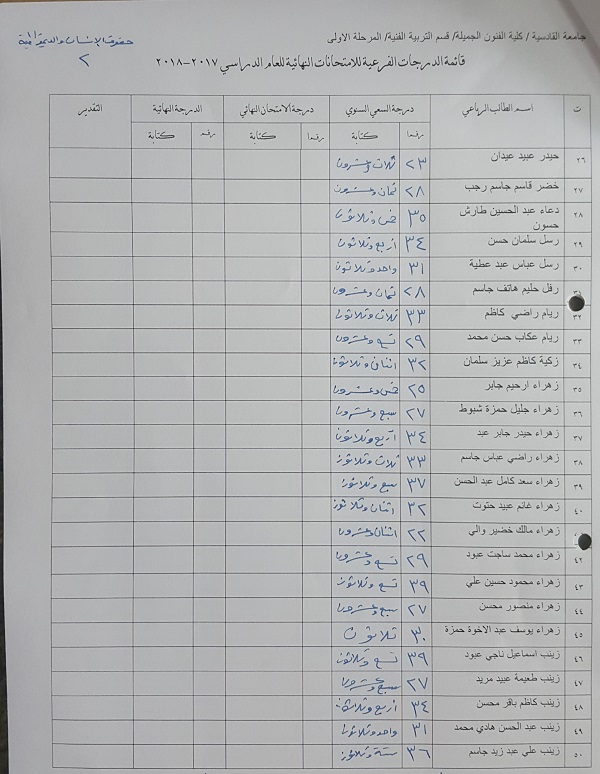 جامعة القادسية / كلية الفنون الجميلة/ قسم التربية الفنية/ المرحلة الاولى
حقوق الإنسان والديمقراطية
٢
قائمة الدرجات الفرعية للامتحانات النهائية للعام الدراسي ٢٠١٧-٢٠١٨
ت اسم الطالب الرباعي درجة السعي السنوي درجة الامتحان النهائي الدرجة النهائية التقدير
رقما كتابة رقما كتابة رقم كتابة
٢٦ حيدر عبيد عيدان ٢٣ ثلاث وعشرون
٢٧ خضر قاسم جاسم رجب ٢٨ ثمان وعشرون
٢٨ دعاء عبد الحسين طارش حسون ٣٥ خمس وثلاثون
٢٩ رسل سلمان حسن ٣٤ أربع وثلاثون
٣٠ رسل عباس عبد عطية ٣١ واحد وثلاثون
٣١ رفل حليم هاتف جاسم ٢٨ ثمان وعشرون
٣٢ ريام راضي كاظم ٣٣ ثلاث وثلاثون
٣٣ ريام عكاب حسن محمد ٢٩ تسع وعشرون
٣٤ زكية كاظم عزيز سلمان ٣٢ اثنان وثلاثون
٣٥ زهراء ارحيم جابر ٢٥ خمس وعشرون
٣٦ زهراء جليل حمزة شبوط ٢٧ سبع وعشرون
٣٧ زهراء حيدر جابر عبد ٣٤ أربع وثلاثون
٣٨ زهراء راضي عباس جاسم ٣٣ ثلاث وثلاثون
٣٩ زهراء سعد كامل عبد الحسن ٣٧ سبع وثلاثون
٤٠ زهراء غانم عبيد حتوت ٣٢ اثنان وثلاثون
زهراء مالك خضير والي ٢٢ اثنان وعشرون
٤٢ زهراء محمد ساجت عبود ٢٩ تسع وعشرون
٤٣ زهراء محمود حسين علي ٣٩ تسع وثلاثون
٤٤ زهراء منصور محسن ٢٧ سبع وعشرون
٤٥ زهراء يوسف عبد الاخوة حمزة ٣٠ ثلاثون
٤٦ زينب اسماعيل ناجي عبود ٣٩ تسع وثلاثون
٤٧ زينب طعيمة عبيد مريد ٢٧ سبع وعشرون
٤٨ زينب كاظم باقر محسن ٣٤ أربع وثلاثون
٤٩ زينب عبد الحسن هادي محمد ٣١ واحد وثلاثون
٥٠ زينب علي عبد زيد جاسم ٣٦ ستة وثلاثون